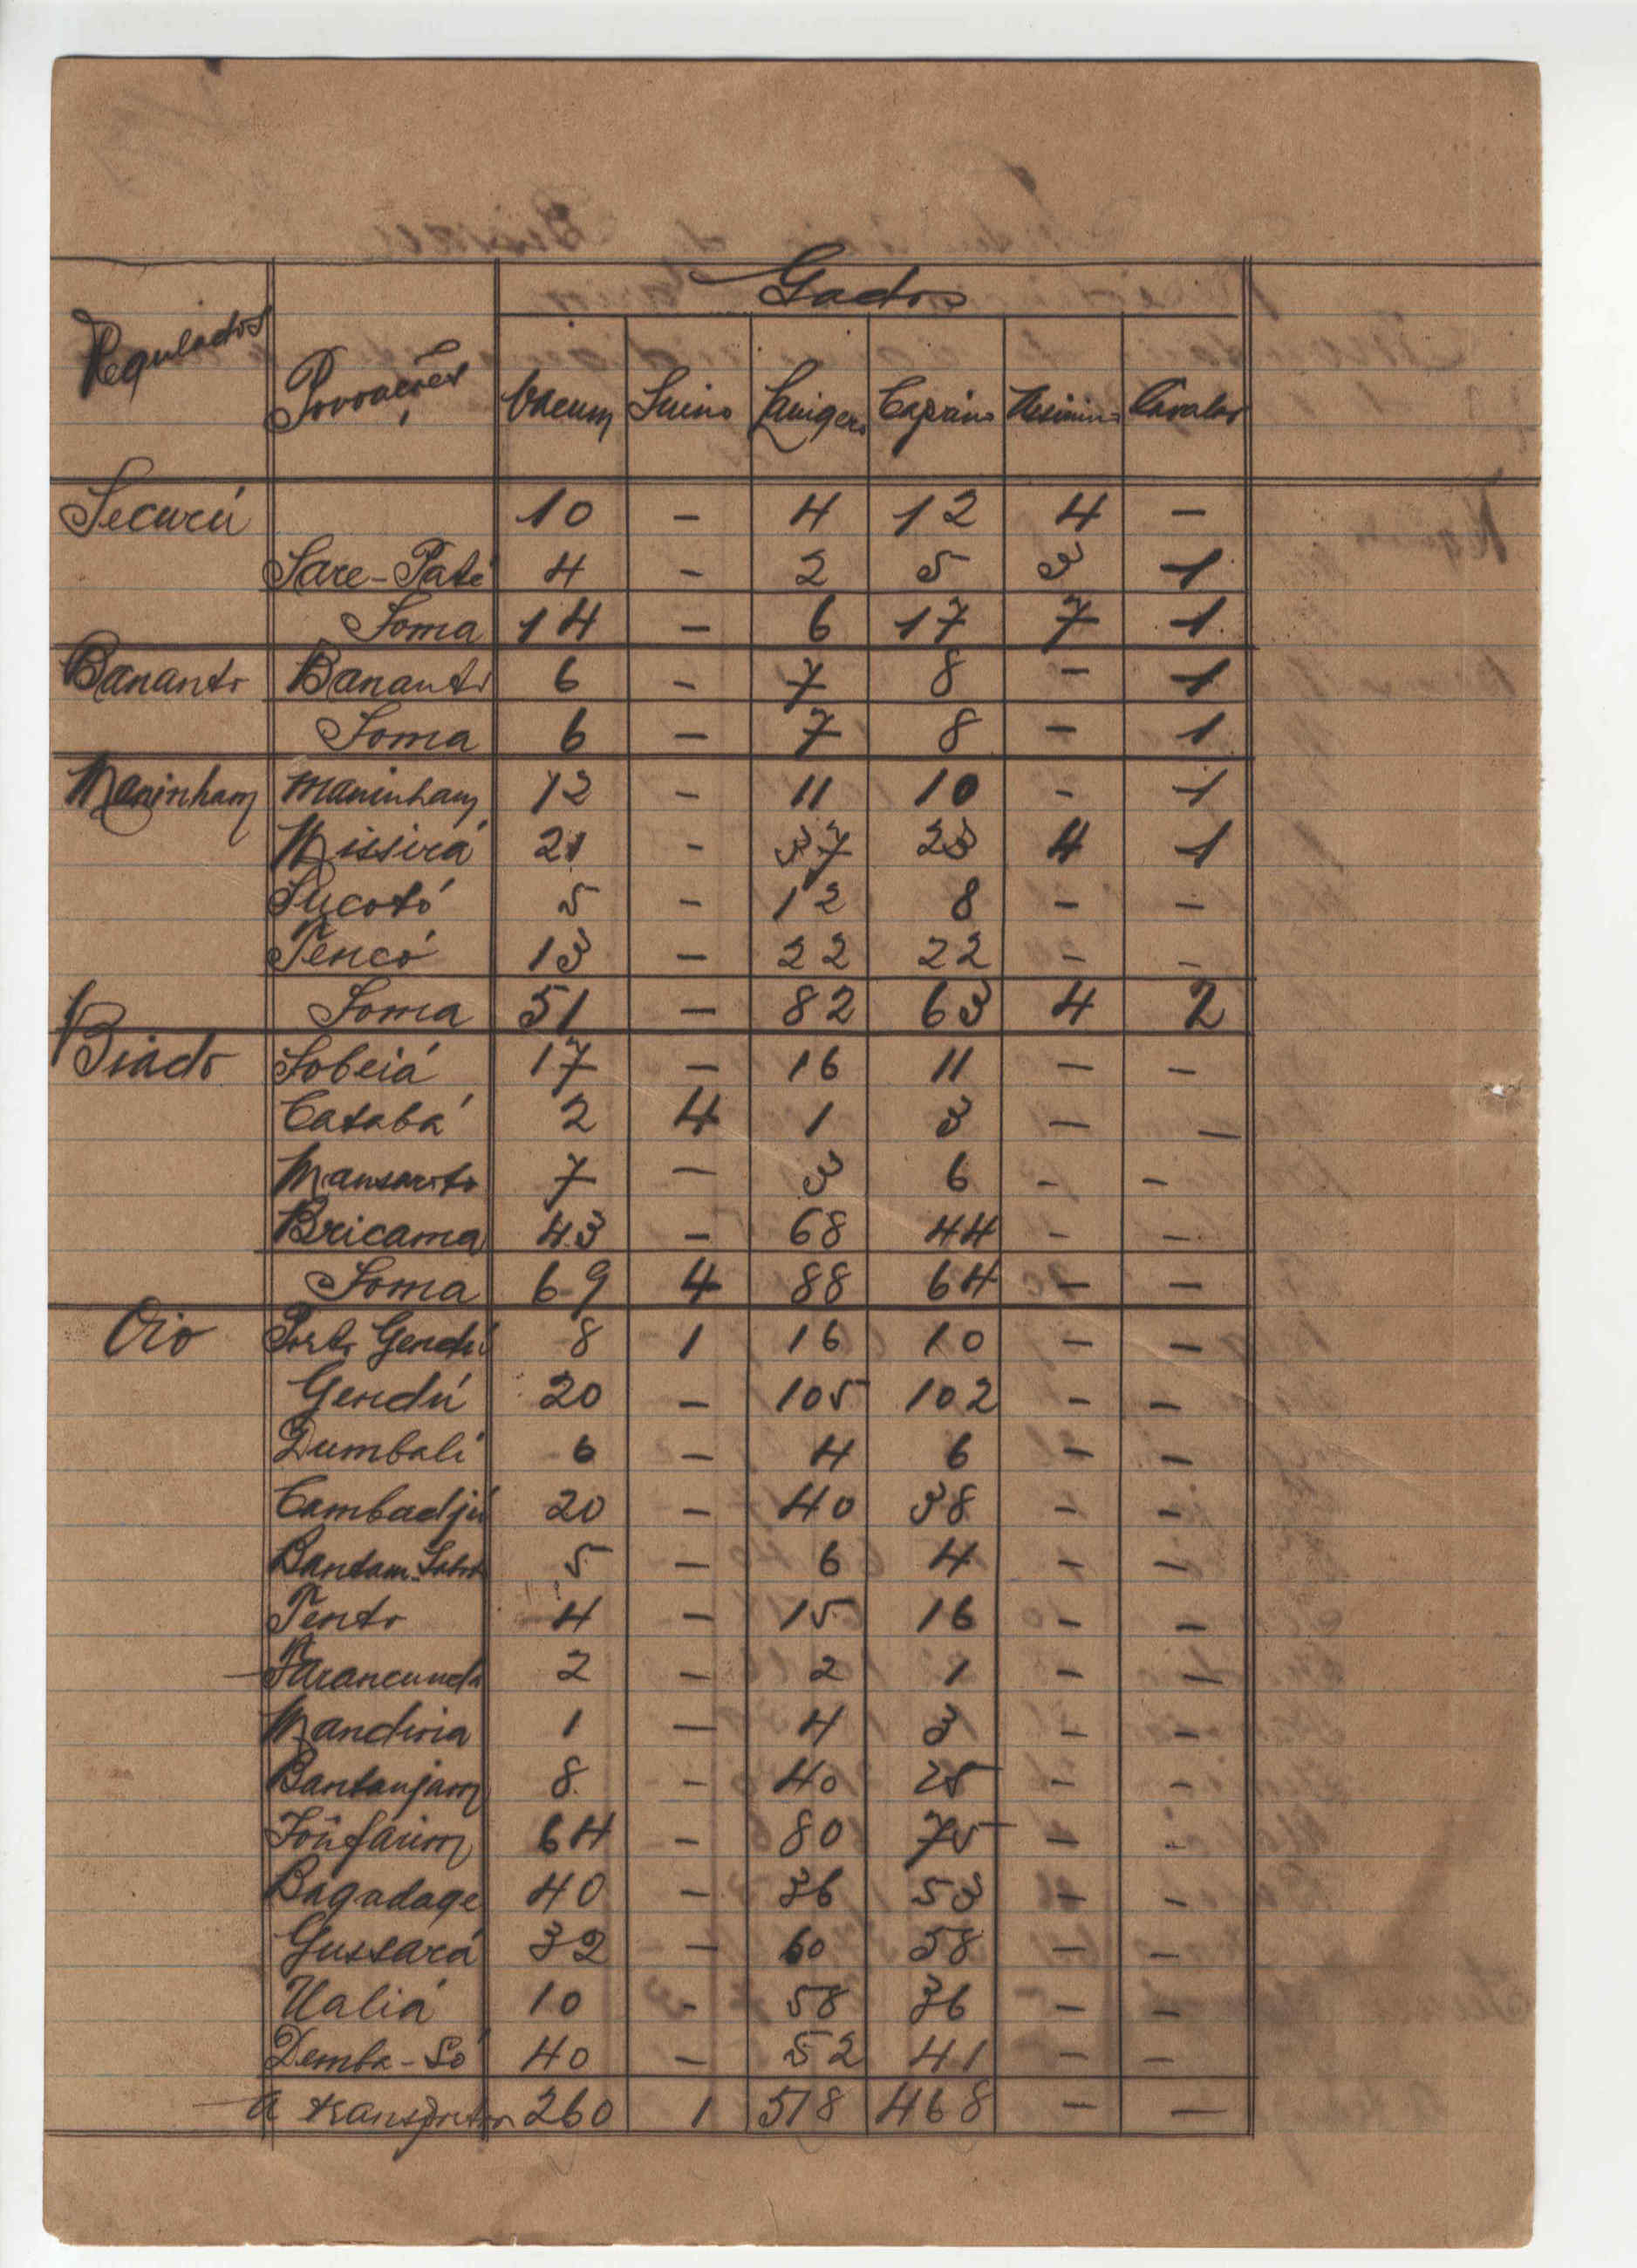 Gados
Regulados Povoações Vacum Suino Lanigero Caprino Asinino Cavalar
Securú 10 - 4 12 4 -
Sare-Paté 4 - 2 5 3 1
Soma 14 - 6 17 7 1
Bananto Bananto 6 - 7 8 - 1
Soma 6 - 7 8 - 1
Maninham Maninham 12 - 11 10 - 1
Missirá 21 - 37 23 4 1
Sucotó 5 - 12 8 - -
Tencó 13 - 22 22 - -
Soma 51 - 82 63 4 2
Biado Sobeiá 17 - 16 11 - -
Catabá 2 4 1 3 - -
Mansorto 7 - 3 6 - -
Bricama 43 - 68 44 - -
Soma 69 4 88 64 - -
Oio Porto Gendú 8 1 16 10 - -
Gendú 20 - 105 102 - -
Dumbali 6 - 4 6 - -
Cambadjú 20 - 40 38 - -
Bantam 5 - 6 4 - -
Tento 4 - 15 16 - -
Farancunda 2 - 2 1 - -
Mandiria 1 - 4 3 - -
Bantanjam 8 - 40 25 - -
Fônfarim 64 - 80 75 - -
Bagadage 40 - 36 53 - -
Gussará 32 - 60 58 - -
Ualiá 10 - 58 36 - -
Demba-Só 40 - 52 41 - -
A transportar 260 1 518 468 - -